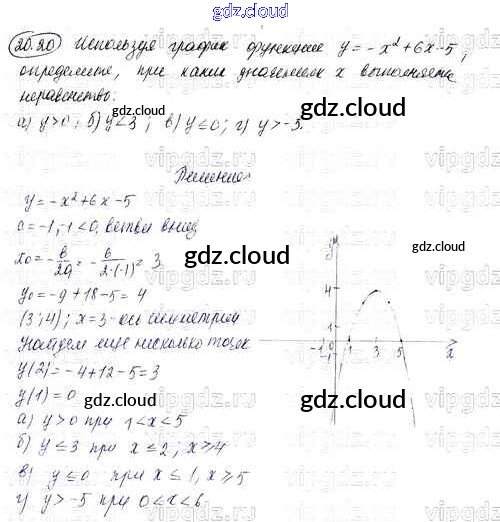 gdz.cloud
20.20 Используя график функции y = -x² + 6x - 5,
определите, при каких значениях x выполняется
неравенство:
а) y>0, б) y≤3; в) y≤0; г) y>-5.
Решение
y = -x² + 6x - 5
a = -1, -1 < 0, ветви вниз
x₀ = -б/2a = -6/2·(-1) = 3
y₀ = -9 + 18 - 5 = 4
(3; 4); x = 3 - ось симметрии
Найдем еще несколько точек
y(2) = -4 + 12 - 5 = 3
y(1) = 0
а) y > 0 при 1 < x < 5
б) y ≤ 3 при x ≤ 2; x ≥ 4
в) y ≤ 0 при x ≤ 1, x ≥ 5
г) y > -5 при 0 < x < 6
y
4
1
-1 0 1 3 5 x
-1
gdz.cloud
gdz.cloud
gdz.cloud
gdz.cloud
gdz.cloud
gdz.cloud
gdz.cloud
vipgdz.ru